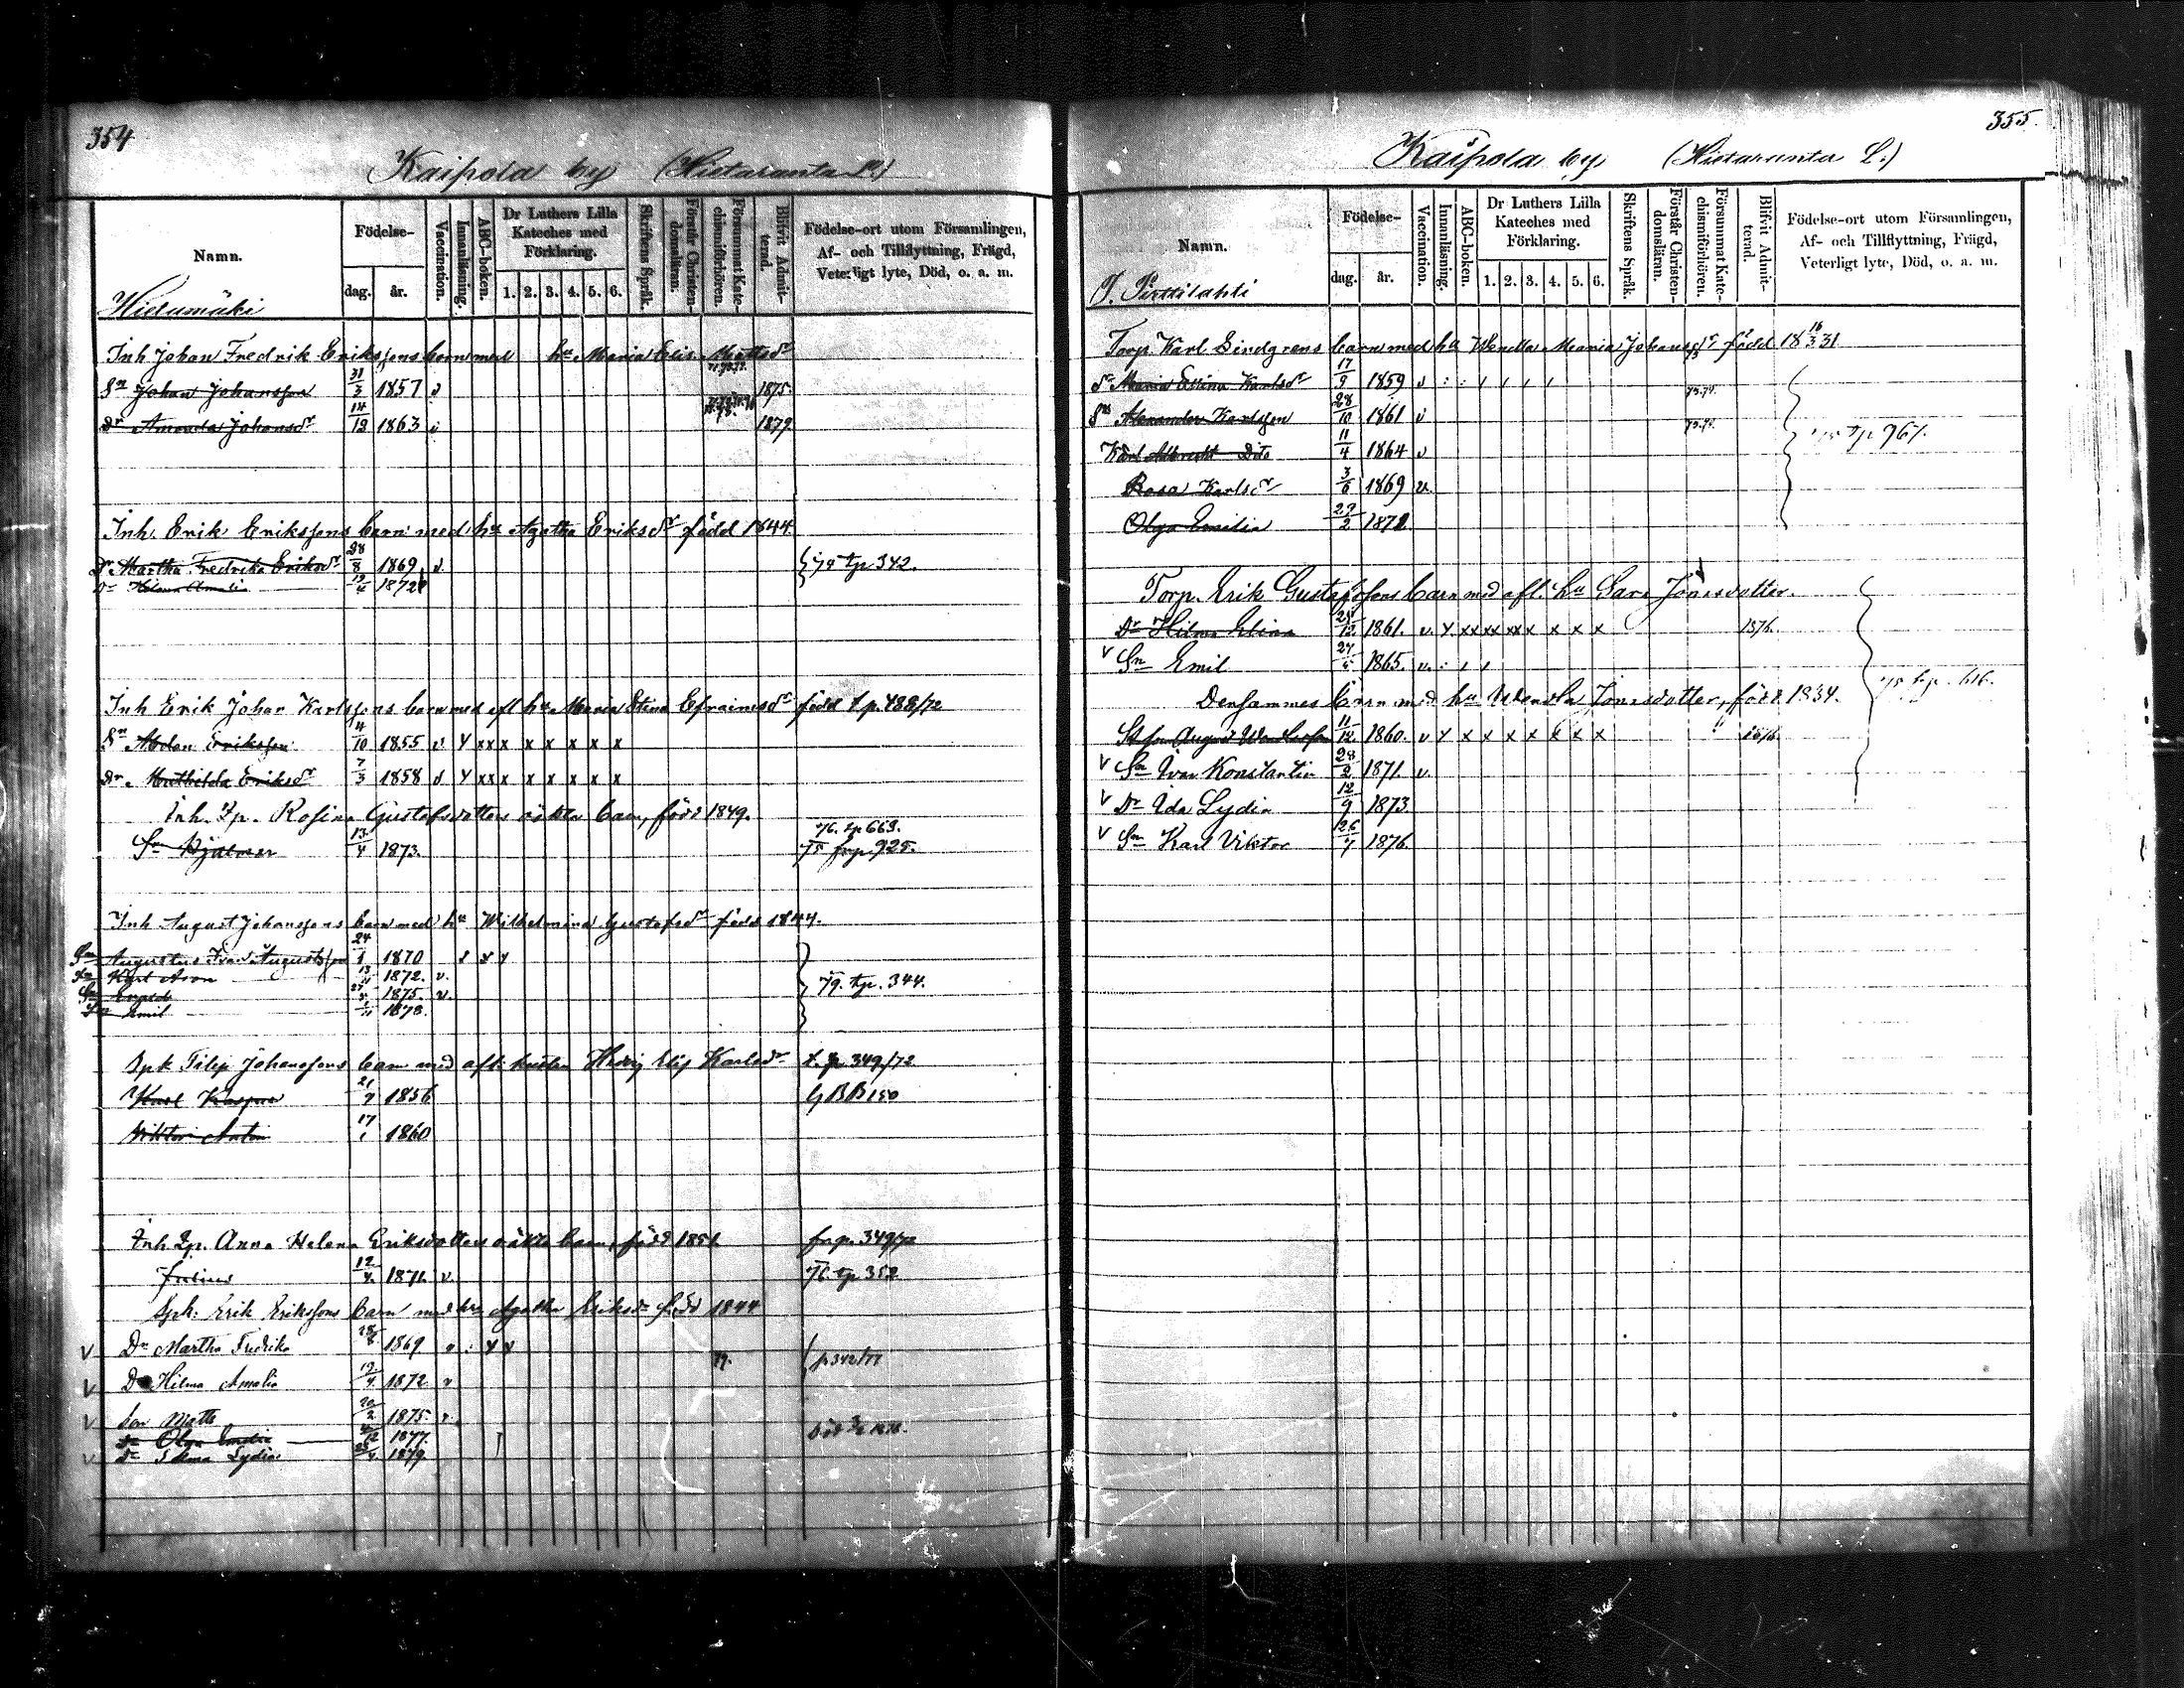 354
Kaipola by (Hietaranta L.)
Namn.
Födelse-
dag.
år.
Vaccination.
Innanläsning.
ABC-boken.
Dr Luthers Lilla Kateches med Förklaring.
1. 2. 3. 4. 5. 6.
Skriftens Språk.
Förstår Christendomsläran.
Försummat Katechismiförhören.
Blifvit Admitterad.
Födelse-ort utom Församlingen, Af- och Tillflyttning, Frägd, Veterligt lyte, Död, o. a. m.
Hietamäki
Inh Johan Fredrik Erikssons barn med hu Maria Elis. Mattsdr
Sn Johan Johansson 31/3 1857 v 1875.
Dr Amanda Johansdr 14/12 1863 v 1879
Inh. Erik Erikssons barn med hu Agatha Eriksdr född 1844.
Dr Martha Fredrika Eriksdr 28/8 1869 v. 75 tp 342.
Dr Hilma Amalia 19/4 1872
Inh Erik Johan Karlssons barn med afl hu Maria Stina Efraimsdr född t.p. 488/72
Sn Abdon Eriksson 4/10 1855 v Y xx x x x x x x
Dr Mathilda Eriksdr 7/3 1858 v Y xx x x x x x x
Inh. Qp. Rosina Gustafsdotters oäkta barn, född 1849.
Sn Hjalmar 13/4 1873. 76. tp 663.
75 frp. 925.
Inh August Johanssons barn med hu Wilhelmina Gustafsdr född 1844.
Sn Augustus Ivar Augustsson 24/1 1870
Sn Karl Aron 1872. v. 79. tp. 344.
Sn Evald 1875. v.
Sn Emil 1878.
Spk Filip Johanssons barn med afl. hustru Hedvig Elis Karlsdr t. p 349/72
Karl Kaspar 21/7 1856 G BB 150
Viktor Anton 17/1 1860
Inh. Qp. Anna Helena Eriksdotters oäkta barn, född 1851. frp. 349/72
Julius 12/4 1871. v. 76. tp 352
Sph. Erik Erikssons barn med hu Agatha Eriksdr född 1844
V Dr Martha Fredrika 28/8 1869
V Dr Hilma Amalia 19/4 1872 v 77. p 342/77
V Son Matts 20/2 1875. v.
Dr Olga Emelia 1877. död 1878.
V Dr Selma Lydia 1879
355.
Kaipola by (Hietaranta L.)
Namn.
Födelse-
dag.
år.
Vaccination.
Innanläsning.
ABC-boken.
Dr Luthers Lilla Kateches med Förklaring.
1. 2. 3. 4. 5. 6.
Skriftens Språk.
Förstår Christendomsläran.
Försummat Katechismiförhören.
Blifvit Admitterad.
Födelse-ort utom Församlingen, Af- och Tillflyttning, Frägd, Veterligt lyte, Död, o. a. m.
T. Pirttilahti
Torp. Karl Lindgrens barn med hu Wendla Maria Johansdr född 18 16/3 31
Dr Maria Elina Karlsdr 17/9 1859 v
Sn Alexander Karlsson 28/10 1861 v 75 tp 767.
Karl Albrecht Dito 11/4 1864 v
Rosa Karlsdr 3/6 1869 v.
Olga Emilia 29/2 1872
Torp. Erik Gustafssons barn med afl. hu Sara Jonasdotter.
Dr Hilma Elina 1861. v. Y xx xx xx x x x x 1876.
V Sn Emil 1865. v.
Densammes barn med hu Wendla Jonasdotter, född 1834. 75 tp. 616.
St son August Wendlasson 11/12 1860. v Y x x x x x x x 1876
V Sn Ivar Konstantin 28/2 1871. v.
V Dr Ida Lydia 12/9 1873
V Sn Karl Viktor 26/7 1876